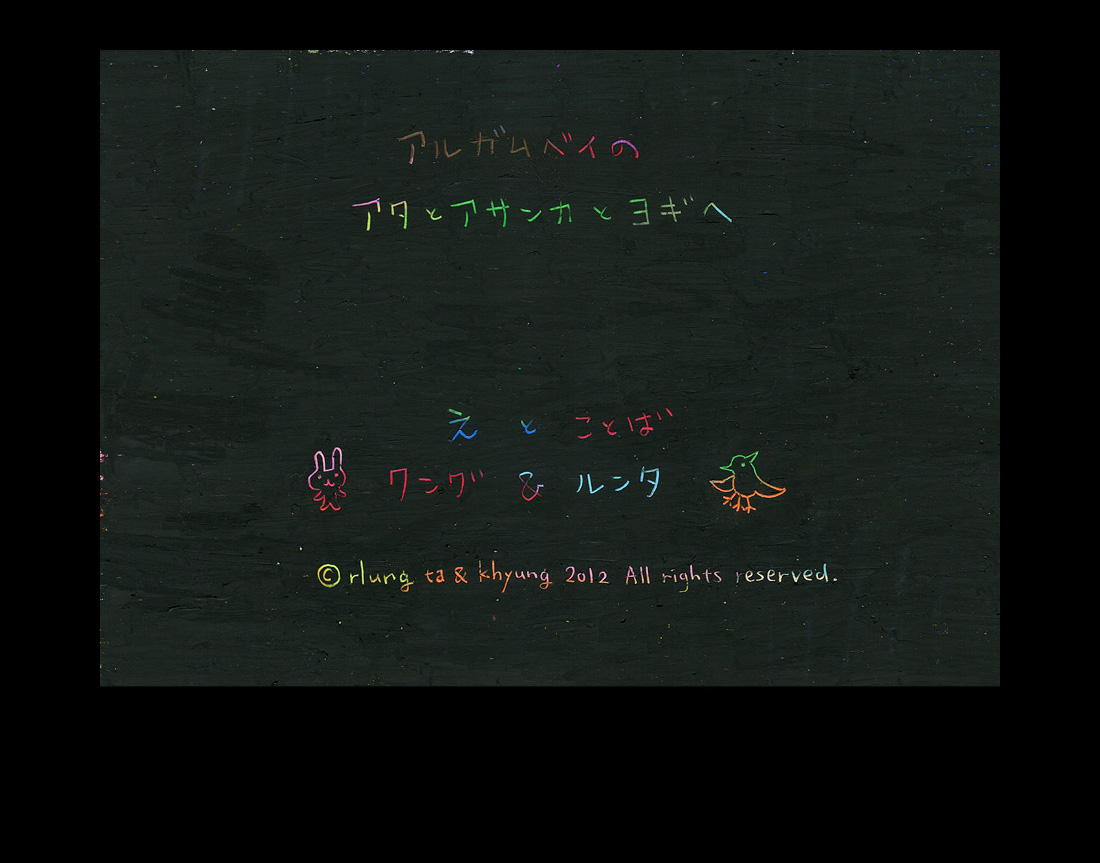 アルガムベイの
アタとアサンカとヨギへ
え と ことば
ワング & ルンタ
© rlung ta & khyung 2012 All rights reserved.